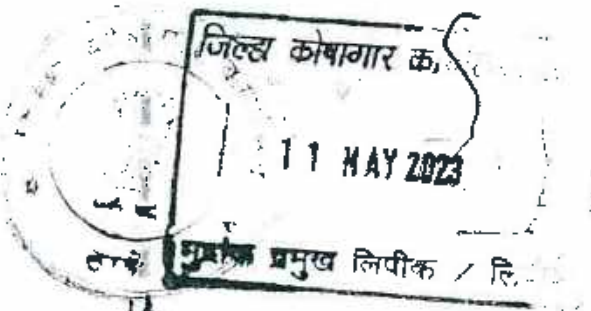 जिल्हा कोषागार क,
11 MAY 2023
मुद्रांक प्रमुख लिपीक / लि